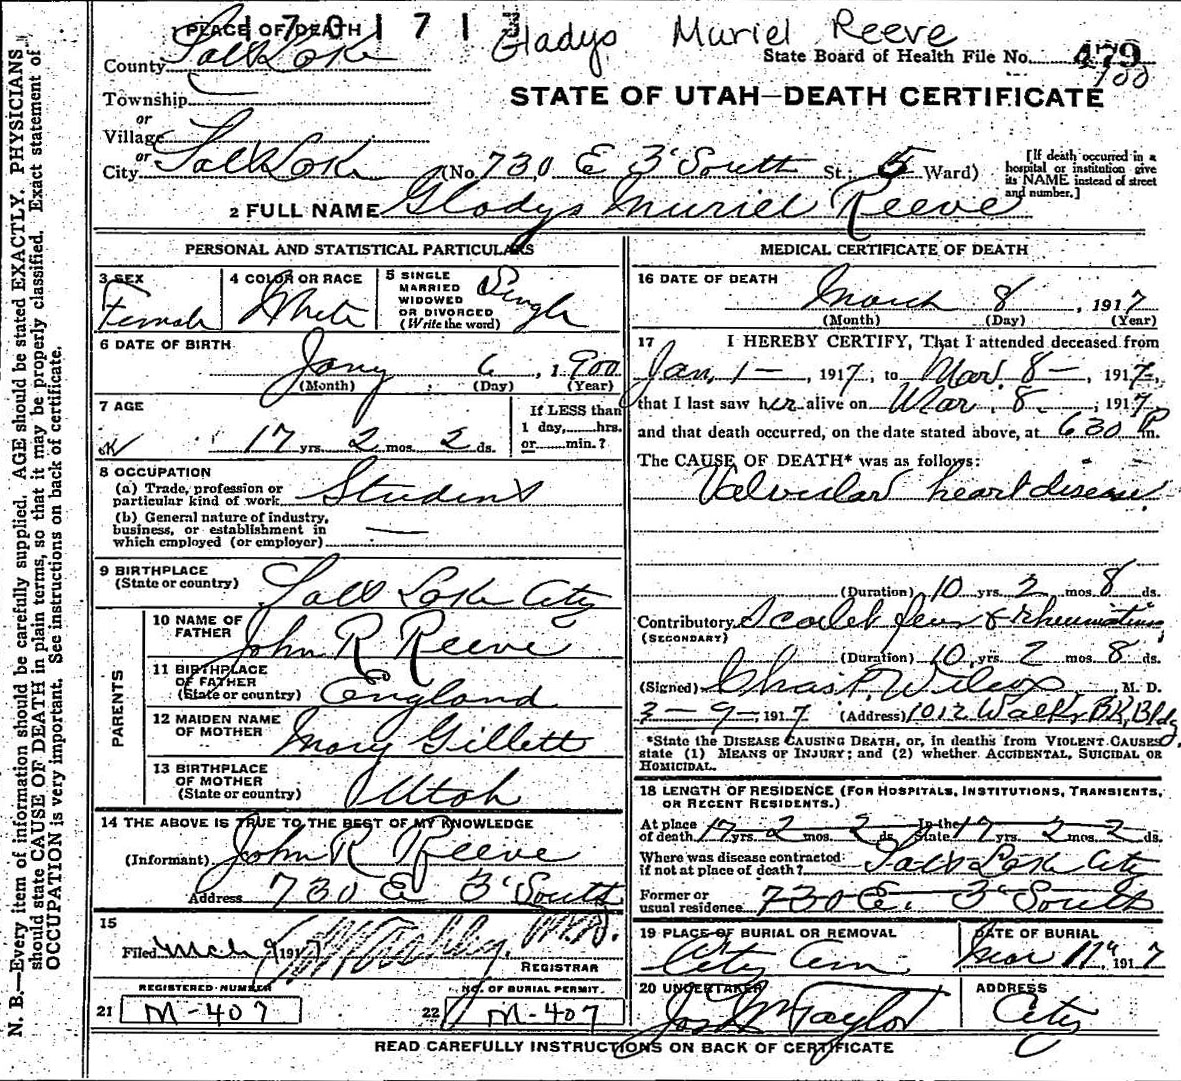 1 PLACE OF DEATH
1 7 0 1 7 1
Gladys Muriel Reeve
County Salt Lake
State Board of Health File No. 479
100
Township
or
Village
STATE OF UTAH—DEATH CERTIFICATE
or
City Salt Lake (No. 730 E 3' South St.; 5 Ward)
[If death occurred in a hospital or institution give its NAME instead of street and number.]
2 FULL NAME Gladys Muriel Reeve
PERSONAL AND STATISTICAL PARTICULARS
3 SEX
Female
4 COLOR OR RACE
White
5 SINGLE
MARRIED
WIDOWED
OR DIVORCED
(Write the word)
Single
6 DATE OF BIRTH
Jany 6, 1900
(Month) (Day) (Year)
7 AGE
17 yrs. 2 mos. 2 ds.
If LESS than
1 day,......hrs.
or......min.?
8 OCCUPATION
(a) Trade, profession or
particular kind of work Student
(b) General nature of industry,
business, or establishment in
which employed (or employer) —
9 BIRTHPLACE
(State or country) Salt Lake City
PARENTS
10 NAME OF
FATHER John R Reeve
11 BIRTHPLACE
OF FATHER
(State or country) England
12 MAIDEN NAME
OF MOTHER Mary Gillett
13 BIRTHPLACE
OF MOTHER
(State or country) Utah
14 THE ABOVE IS TRUE TO THE BEST OF MY KNOWLEDGE
(Informant) John R Reeve
Address 730 E 3' South
15
Filed Mch 9 1917 M.D.
REGISTRAR
REGISTERED NUMBER
21 M-407
NO. OF BURIAL PERMIT.
22 M-407
MEDICAL CERTIFICATE OF DEATH
16 DATE OF DEATH
March 8, 1917
(Month) (Day) (Year)
17 I HEREBY CERTIFY, That I attended deceased from
Jan. 1—, 1917, to Mar. 8—, 1917,
that I last saw her alive on Mar. 8, 1917
and that death occurred, on the date stated above, at 630 P m.
The CAUSE OF DEATH* was as follows:
Valvular heart disease
(Duration) 10 yrs. 2 mos. 8 ds.
Contributory Scarlet fever & Rheumatism
(SECONDARY)
(Duration) 10 yrs. 2 mos. 8 ds.
(Signed) Chas F. Wilcox, M. D.
3-9-, 1917 (Address) 1012 Walker BK, Bldg.
*State the DISEASE CAUSING DEATH, or, in deaths from VIOLENT CAUSES
state (1) MEANS OF INJURY; and (2) whether ACCIDENTAL, SUICIDAL OR
HOMICIDAL.
18 LENGTH OF RESIDENCE (FOR HOSPITALS, INSTITUTIONS, TRANSIENTS,
OR RECENT RESIDENTS.)
At place
of death 17 yrs. 2 mos. 2 ds. In the State 17 yrs. 2 mos. 2 ds.
Where was disease contracted
if not at place of death? Salt Lake City
Former or
usual residence 730 E. 3' South
19 PLACE OF BURIAL OR REMOVAL
City Cem.
DATE OF BURIAL
Mar 11", 1917
20 UNDERTAKER
Jos Wm Taylor
ADDRESS
City
READ CAREFULLY INSTRUCTIONS ON BACK OF CERTIFICATE
N. B.—Every item of information should be carefully supplied. AGE should be stated EXACTLY. PHYSICIANS
should state CAUSE OF DEATH in plain terms, so that it may be properly classified. Exact statement of
OCCUPATION is very important. See instructions on back of certificate.